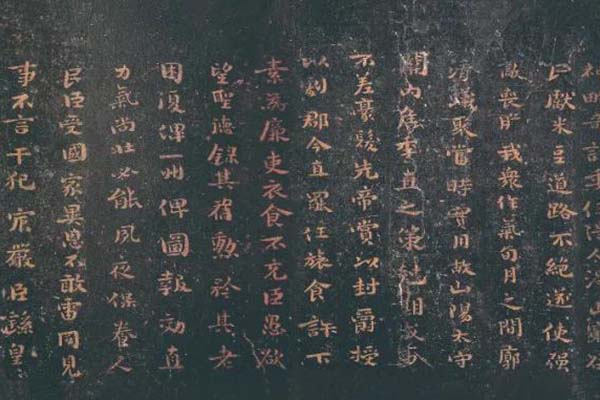 民獻米豆道路不絕遂使強
敵喪膽我眾作氣旬月之間廓
清蟻聚當時實用故山陽太守
關內侯季直之策剋期成事
不差豪髮先帝賞以封爵授
以劇郡今直罷任旅食許下
素為廉吏衣食不充臣愚欲
望聖德錄其舊勳矜其老
困復俾一州俾圖報效直
力氣尚壯必能夙夜保養人
民臣受國家異恩不敢雷同見
事不言干犯宸嚴臣繇皇